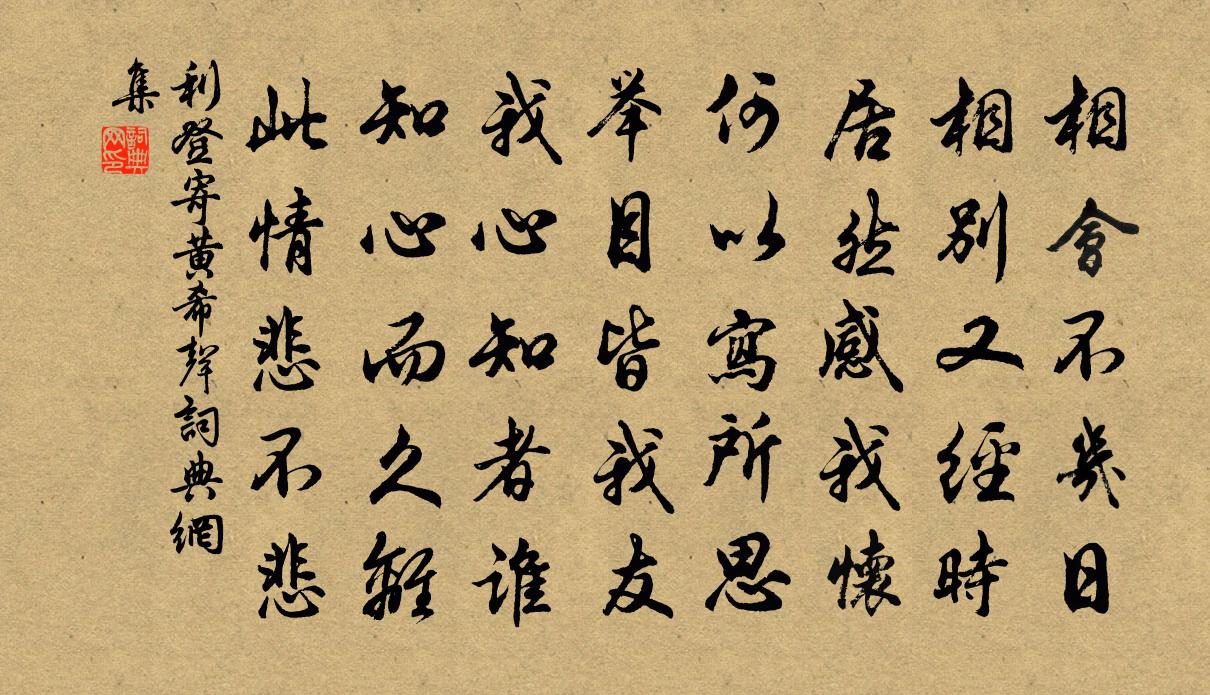 相會不幾日
相別又經時
居然感我懷
何以寫所思
举目皆我友
我心知者誰
知心而久離
此情悲不悲
利登寄黄希聲詞典網
集
詞典
网印